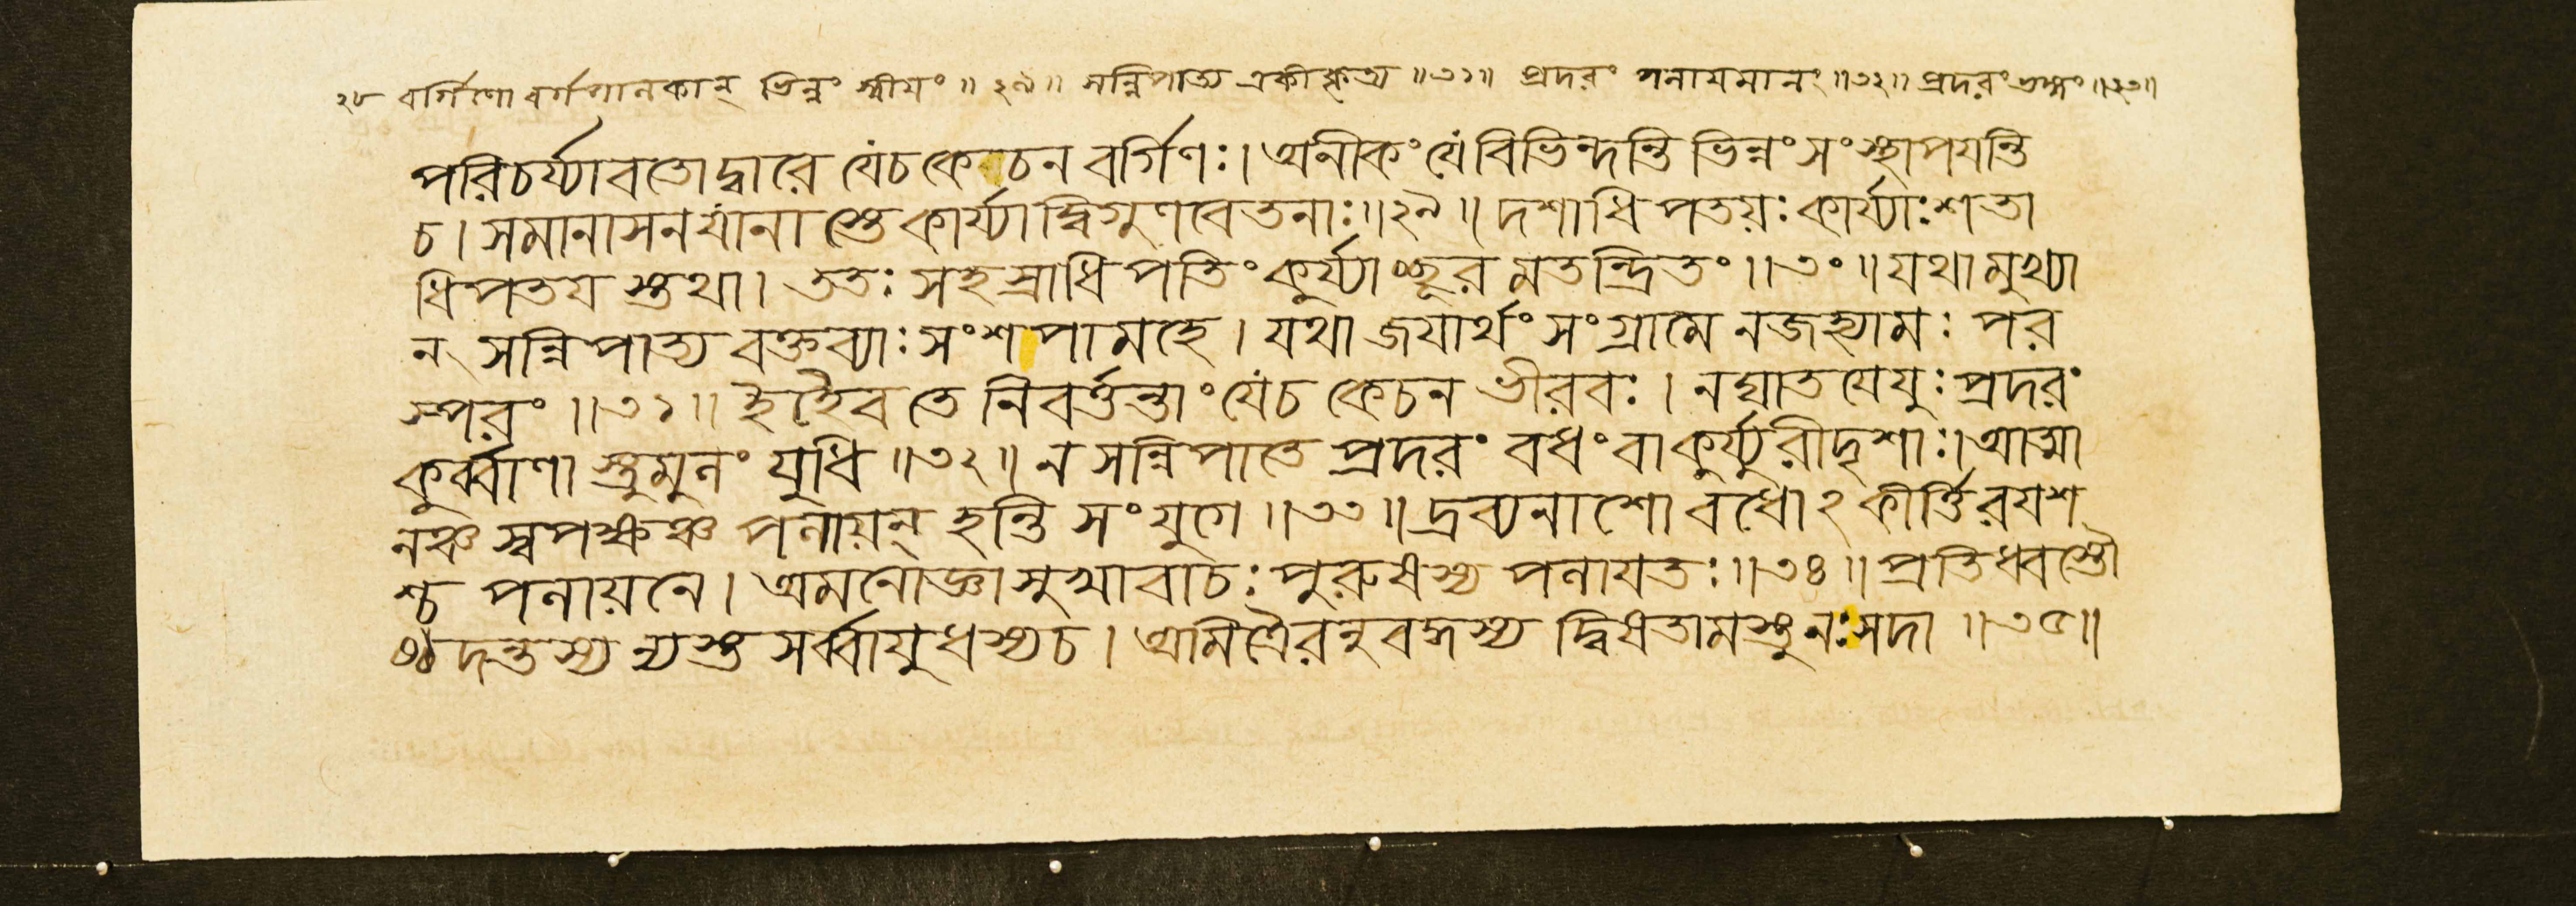 ২৮ বর্গিণো বর্গপালকান্ ভিন্নং স্বীয়ং ॥ ২৯॥ সন্নিপাত্য একীকৃত্য ॥৩১॥ প্রদরং পলায়মানং ॥৩২॥ প্রদরং ভঙ্গং ॥৩৩॥
পরিচর্য্যাবতোদ্বারে যেচকেচন বর্গিণঃ। অনীকংযেবিভিন্দন্তি ভিন্নংসংস্থাপযন্তি
চ। সমানাসনযানাস্তে কার্য্যাদ্বিগুণবেতনাঃ॥২৯॥ দশাধিপতয়ঃকার্য্যাঃশতা
ধিপতয স্তথা। ততঃ সহস্রাধিপতিং কুর্য্যাচ্ছূরমতন্দ্রিতং ॥৩০॥ যথামুখ্যা
ন্ সন্নিপাত্য বক্তব্যাঃ সংশপামহে। যথা জযার্থং সংগ্রামে নজহ্যামঃ পর
স্পরং ॥৩১॥ ইহৈব তে নিবর্ত্তন্তাং যেচ কেচন ভীরবঃ। নঘাতযেযুঃ প্রদরং
কুর্ব্বাণা স্তুমুলং যুধি ॥৩২॥ ন সন্নিপাতে প্রদরং বধং বাকুর্য্যুরীদৃশাঃ। আত্মা
নঞ্চ স্বপক্ষঞ্চ পলায়ন্ হন্তি সংযুগে ॥৩৩॥ দ্রব্যনাশো বধোঽকীর্ত্তিরযশ
শ্চ পলায়নে। অমনোজ্ঞাসুখাবাচঃ পুরুষস্য পলাযতঃ ॥৩৪॥ প্রতিধ্বস্তৌ
ষ্ঠদন্তস্য ন্যস্তসর্ব্বাযুধস্যচ। অমিত্রৈরনুবদ্ধস্য দ্বিষতামস্তুনঃসদা ॥৩৫॥